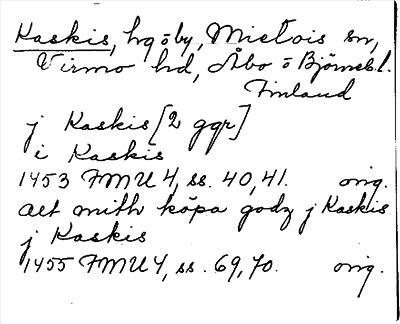 Kaskis, hg o by, Mietois sn,
Virmo hd, Åbo o Björneb. l.
Finland
j Kaskis [2 ggr]
i Kaskis
1453 FMU 4, ss. 40, 41. orig.
alt mith köpa godz j Kaskis
j Kaskis
1455 FMU 4, ss. 69, 70. orig.